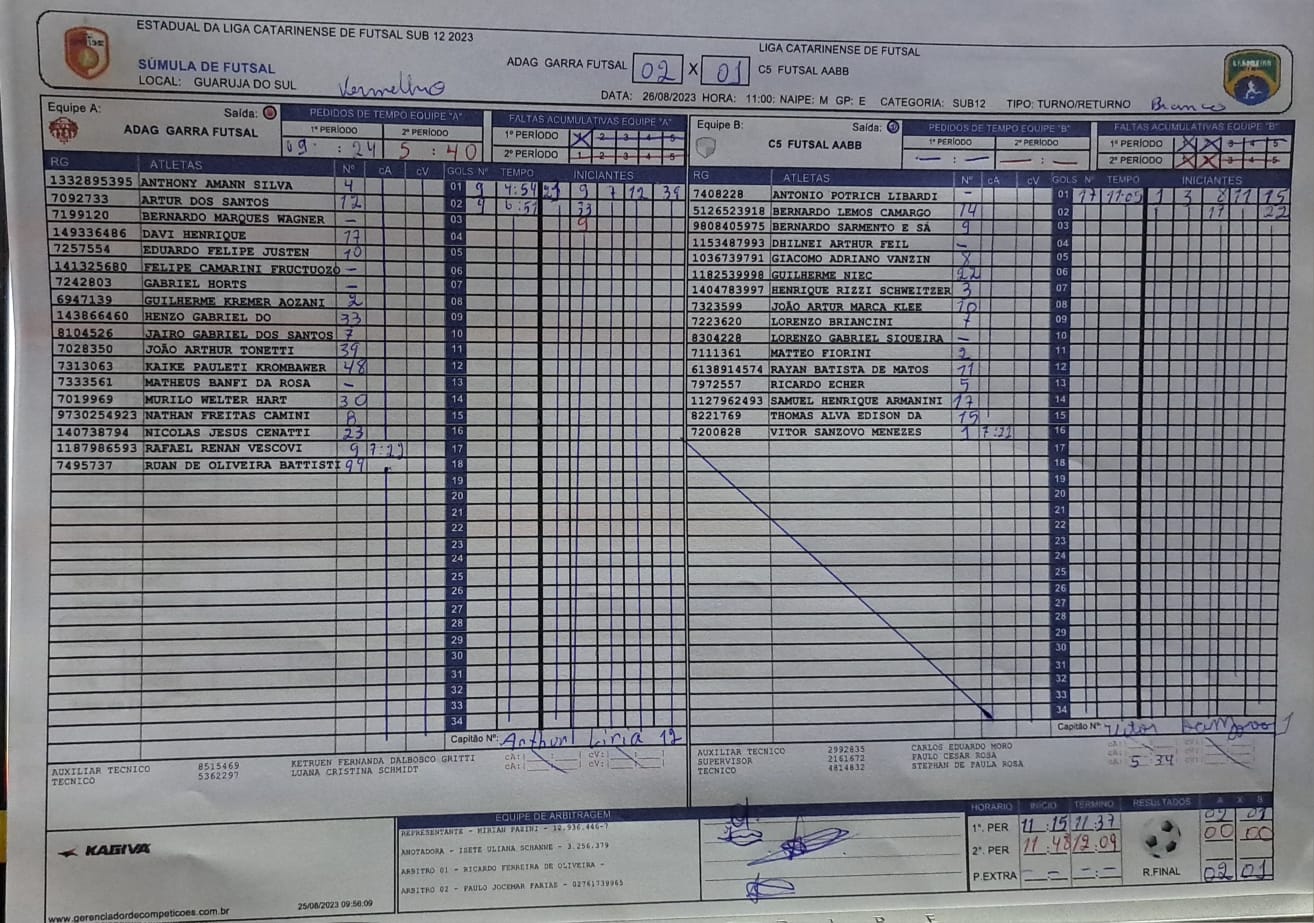 ESTADUAL DA LIGA CATARINENSE DE FUTSAL SUB 12 2023
SÚMULA DE FUTSAL
LOCAL: GUARUJA DO SUL Vermelho
ADAG GARRA FUTSAL 02 X 01 C5 FUTSAL AABB
LIGA CATARINENSE DE FUTSAL
DATA: 26/08/2023 HORA: 11:00: NAIPE: M GP: E CATEGORIA: SUB12 TIPO: TURNO/RETURNO Branco
Equipe A: Saída:
ADAG GARRA FUTSAL
PEDIDOS DE TEMPO EQUIPE "A"
1º PERÍODO 2º PERÍODO
09 : 24 5 : 40
FALTAS ACUMULATIVAS EQUIPE "A"
1º PERÍODO X 2 3 4 5
2º PERÍODO 1 2 3 4 5
RG ATLETAS Nº cA cV GOLS Nº TEMPO INICIANTES
1332895395 ANTHONY AMANN SILVA 4 01 9 7:54 23 9 7 12 39
7092733 ARTUR DOS SANTOS 12 02 9 6:51 33
7199120 BERNARDO MARQUES WAGNER – 03 9
149336486 DAVI HENRIQUE 17 04
7257554 EDUARDO FELIPE JUSTEN 10 05
141325680 FELIPE CAMARINI FRUCTUOZO – 06
7242803 GABRIEL HORTS – 07
6947139 GUILHERME KREMER AOZANI 2 08
143866460 HENZO GABRIEL DO 33 09
8104526 JAIRO GABRIEL DOS SANTOS 7 10
7028350 JOÃO ARTHUR TONETTI 39 11
7313063 KAIKE PAULETI KROMBAWER 48 12
7333561 MATHEUS BANFI DA ROSA – 13
7019969 MURILO WELTER HART 30 14
9730254923 NATHAN FREITAS CAMINI 15
140738794 NICOLAS JESUS CENATTI 23 16
1187986593 RAFAEL RENAN VESCOVI 9 7:22 17
7495737 RUAN DE OLIVEIRA BATTISTI 99 18
19
20
21
22
23
24
25
26
27
28
29
30
31
32
33
34
Capitão Nº: Arthur 12
cA: cV:
cA: cV:
AUXILIAR TECNICO 8515469 KETRUEN FERNANDA DALBOSCO GRITTI
TECNICO 5362297 LUANA CRISTINA SCHMIDT
Equipe B: Saída:
C5 FUTSAL AABB
PEDIDOS DE TEMPO EQUIPE "B"
1º PERÍODO 2º PERÍODO
– : – – : –
FALTAS ACUMULATIVAS EQUIPE "B"
1º PERÍODO X X 3 4 5
2º PERÍODO X X 3 4 5
RG ATLETAS Nº cA cV GOLS Nº TEMPO INICIANTES
7408228 ANTONIO POTRICH LIBARDI – 01 17 11:05 1 3 8 11 15
5126523918 BERNARDO LEMOS CAMARGO 14 02 11 22
9808405975 BERNARDO SARMENTO E SÁ 9 03
1153487993 DHILNEI ARTHUR FEIL – 04
1036739791 GIACOMO ADRIANO VANZIN 8 05
1182539998 GUILHERME NIEC 22 06
1404783997 HENRIQUE RIZZI SCHWEITZER 3 07
7323599 JOÃO ARTUR MARCA KLEE 10 08
7223620 LORENZO BRIANCINI 7 09
8304228 LORENZO GABRIEL SIQUEIRA – 10
7111361 MATTEO FIORINI 2 11
6138914574 RAYAN BATISTA DE MATOS 11 12
7972557 RICARDO ECHER 5 13
1127962493 SAMUEL HENRIQUE ARMANINI 17 14
8221769 THOMAS ALVA EDISON DA 15 15
7200828 VITOR SANZOVO MENEZES 1 7:22 16
17
18
19
20
21
22
23
24
25
26
27
28
29
30
31
32
33
34
Capitão Nº: Vitor Sanzovo 1
AUXILIAR TECNICO 2992835 CARLOS EDUARDO MORO cA: cV:
SUPERVISOR 2161672 PAULO CESAR ROSA cA: cV:
TECNICO 4814832 STEPHAN DE PAULA ROSA cA: 5 34 cV:
KAGIVA
www.gerenciadordecompeticoes.com.br 25/08/2023 09:56:09
EQUIPE DE ARBITRAGEM
REPRESENTANTE - MIRIAN PARINI - 12.936.446-7
ANOTADORA - ISETE ULIANA SCHANNE - 3.256.379
ARBITRO 01 - RICARDO FERREIRA DE OLIVEIRA -
ARBITRO 02 - PAULO JOCEMAR FARIAS - 02761739965
HORARIO INICIO TERMINO RESULTADOS A X B
1º. PER 11 : 15 11 : 37 02 01
2º. PER 11 : 48 12 : 09 00 00
P.EXTRA – : – – : – R.FINAL 02 01